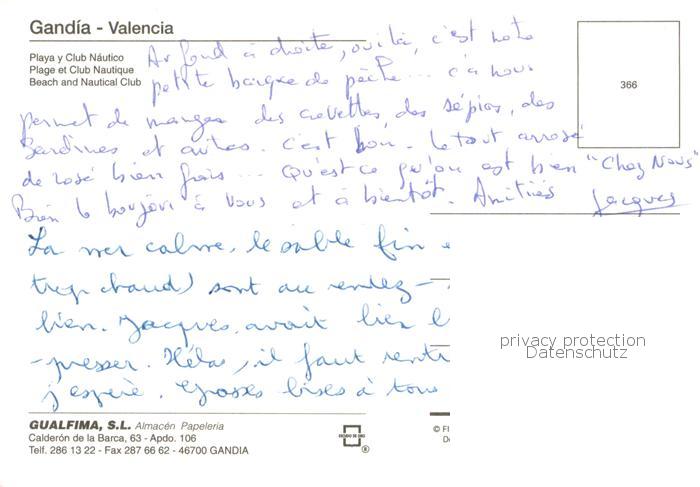 Gandía - Valencia
Playa y Club Náutico
Plage et Club Nautique
Beach and Nautical Club
366
Au fond à droite, oui là, c'est notre
petite barque de pêche... ça nous
permet de manger des crevettes, des sépias, des
Sardines et autres. C'est bon. Le tout arrosé
de rosé bien frais... Qu'est ce qu'on est bien "Chez Nous"
Bien le bonjour à Vous et à bientôt. Amitiés Jacques
La mer calme, le sable fin
trop chaud) sont au rendez-
bien. Jacques avait bien
-presser. Hélas, il faut rentr
j'espère. Grosses bises à tous
privacy protection
Datenschutz
GUALFIMA, S.L. Almacén Papelería
Calderón de la Barca, 63 - Apdo. 106
Telf. 286 13 22 - Fax 287 66 62 - 46700 GANDIA
ESCUDO DE ORO
®
© FI
De